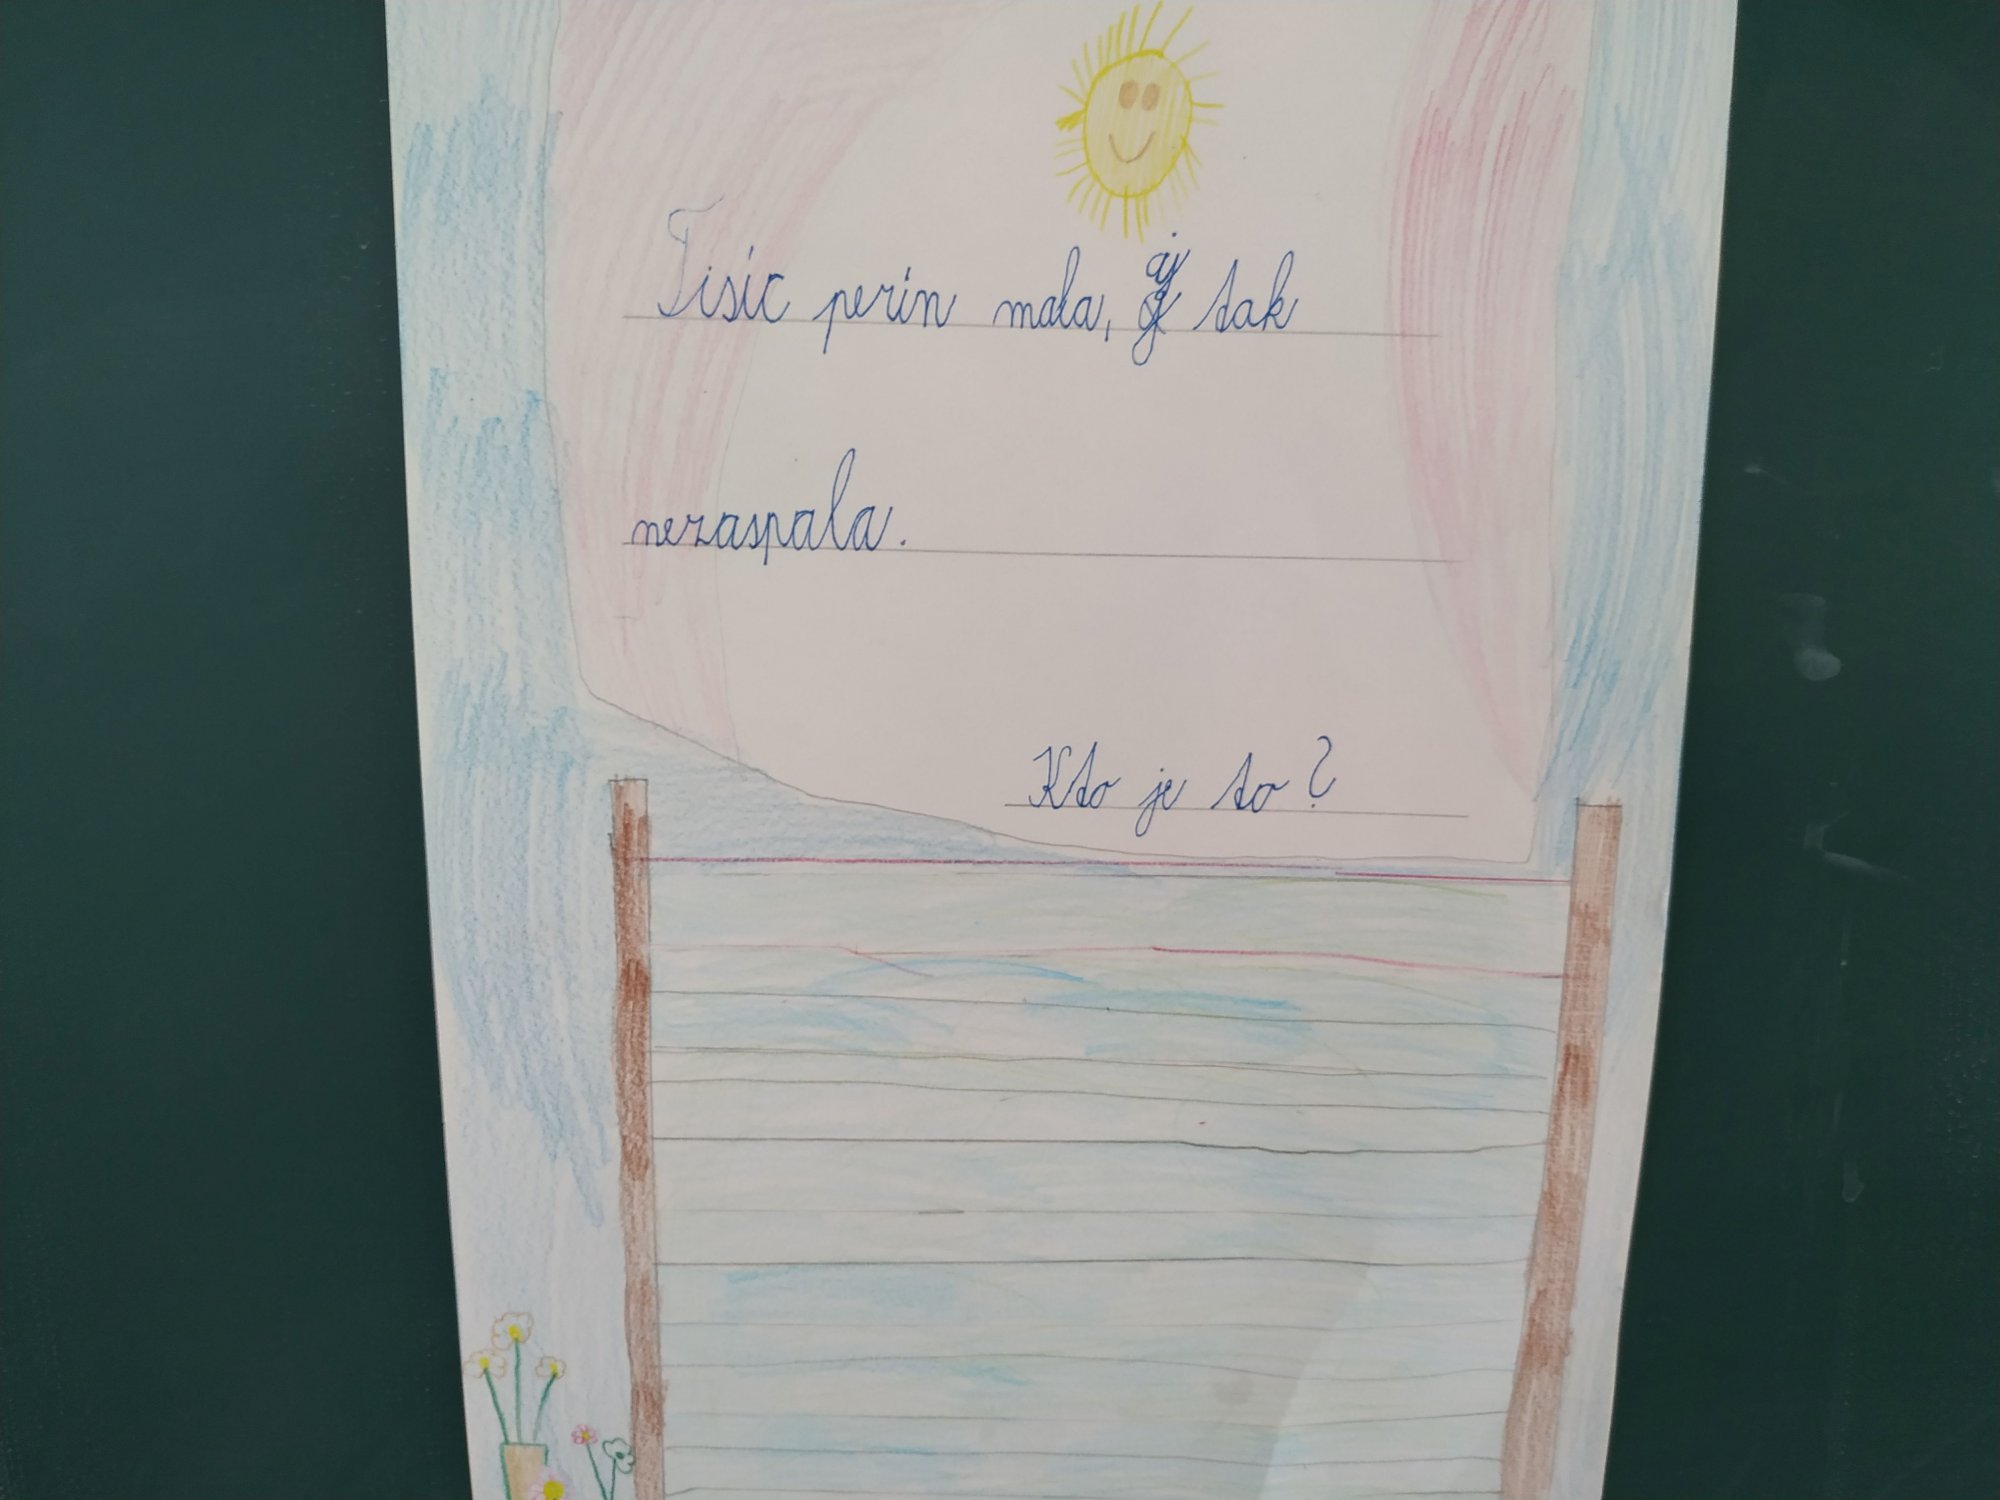 Tisíc perín mala, aj tak
nezaspala.
Kto je to?